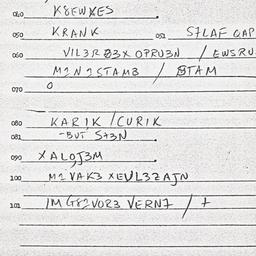 040 K8EWXES
050 KRANK 051 S7LAF
060 VIL3R 83X OPRU3N / EWSRU
M2N2STAMB / STAM
070
0
080 KARIK / CURIK
081 -BUT S+3N
090 XALOJ3M
100 M2VAK3 XEVL3ZAJN
101 VERN7 / +